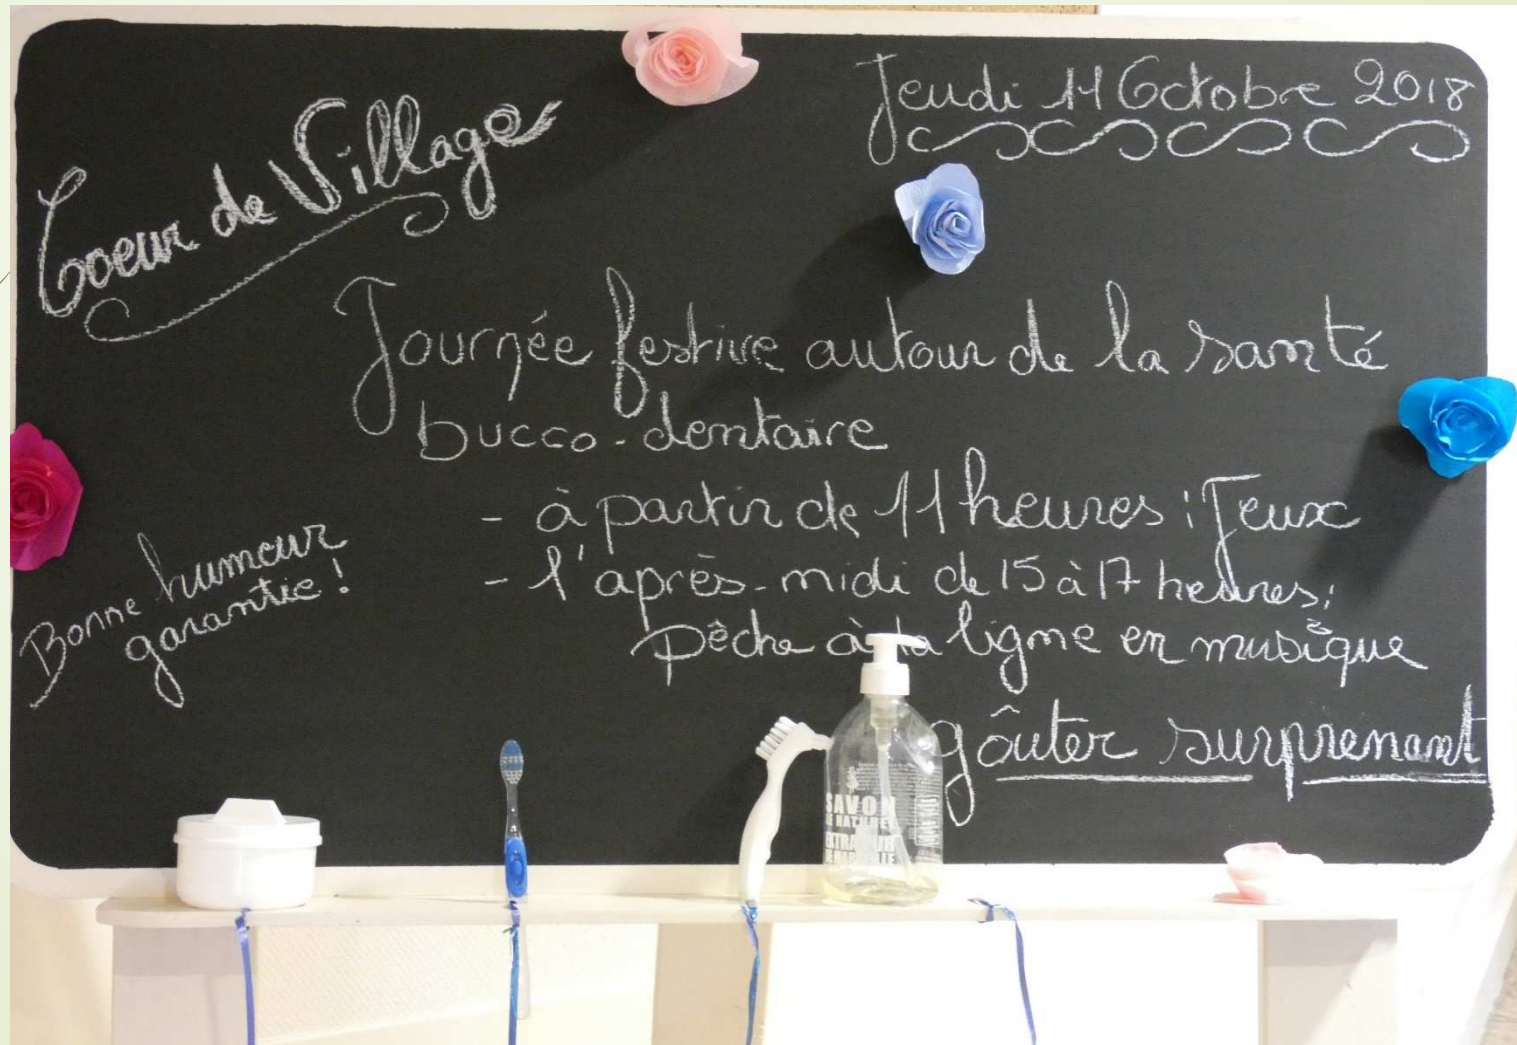 Coeur de Village
Jeudi 11 Octobre 2018
Journée festive autour de la santé
bucco-dentaire
- à partir de 11 heures : Jeux
- l'après-midi de 15 à 17 heures :
pêche à la ligne en musique
goûter surprenant
Bonne humeur
garantie !
SAVON
LE NATUREL
EXTRA PUR
DE MARSEILLE